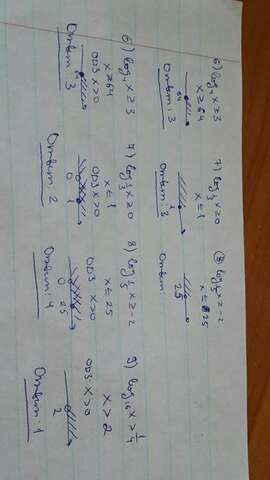 6) log₄x≥3
x≥64
64
Ответ: 3
7) log⅓x≥0
x≤1
1
Ответ: 3
8) log⅕x≥-2
x≤25
25
Ответ:
6) log₄x≥3
x≥64
ОДЗ x>0
Ответ: 3
7) log⅓x≥0
x≤1
ОДЗ x>0
0 1
Ответ: 2
8) log⅕x≥-2
x≤25
ОДЗ x>0
0 25
Ответ: 4
9) log₁₆x>¼
x>2
ОДЗ x>0
2
Ответ: 1